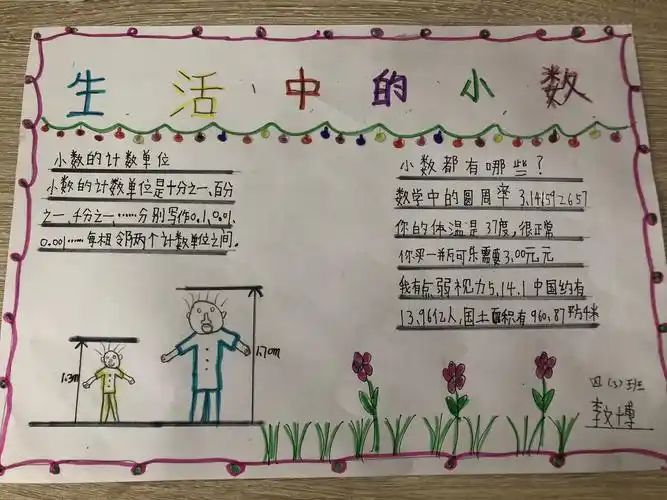 生活中的小数
小数的计数单位
小数的计数单位是十分之一、百分
之一、千分之一……分别写作0.1、0.01、
0.001……每相邻两个计数单位之间.
小数都有哪些？
数学中的圆周率 3.141592657
你的体温是 37度,很正常
你买一瓶可乐需要3.00元元
我有点弱视力5.14.1 中国约有
13.96亿人,国土面积有 960.87 平方千米
1.3m
1.70m
四(3)班
李文博